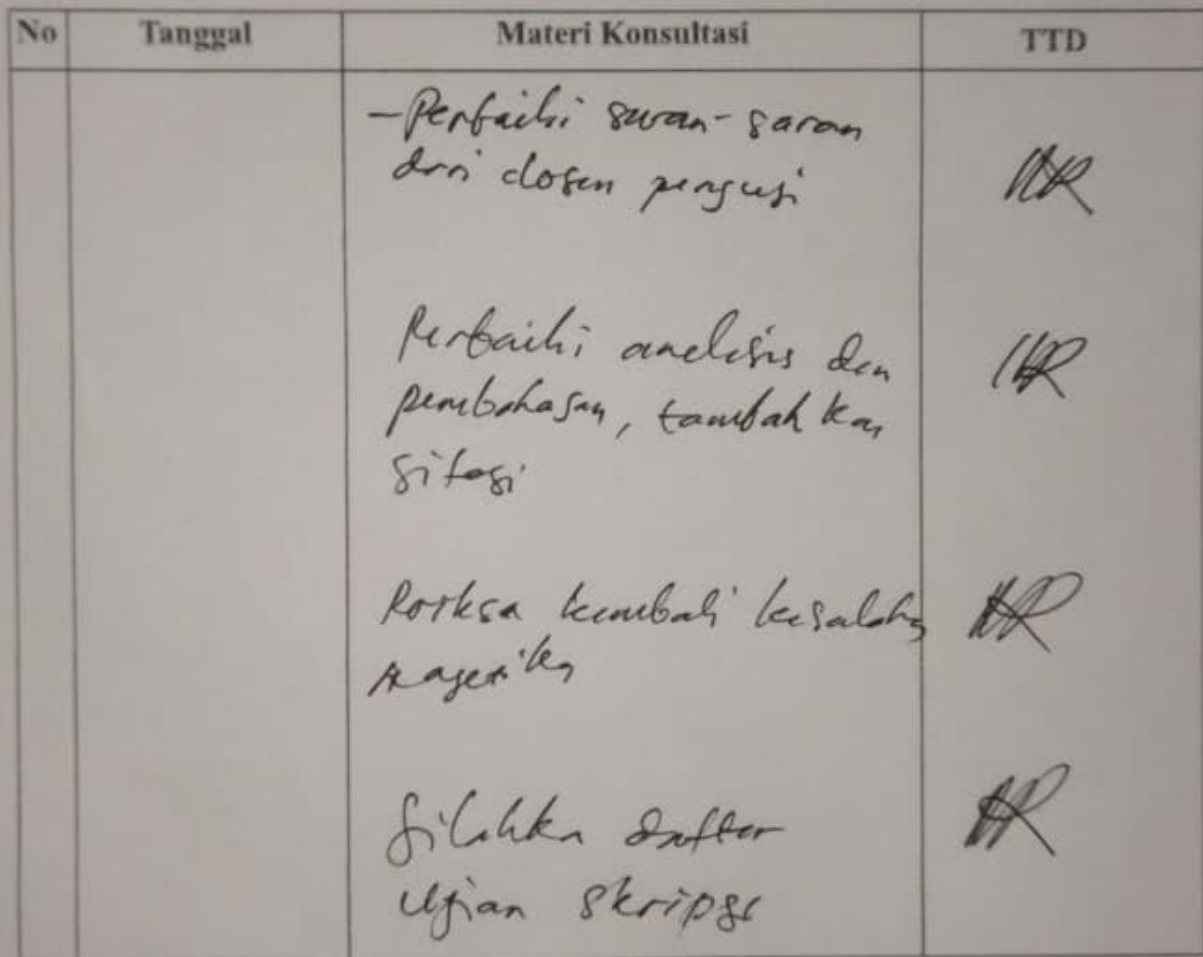 No Tanggal Materi Konsultasi TTD
- Perbaiki saran-saran
dari dosen penguji
Perbaiki analisis dan
pembahasan, tambahkan
sitasi
Periksa kembali kesalahan
Silahkan daftar
Ujian skripsi